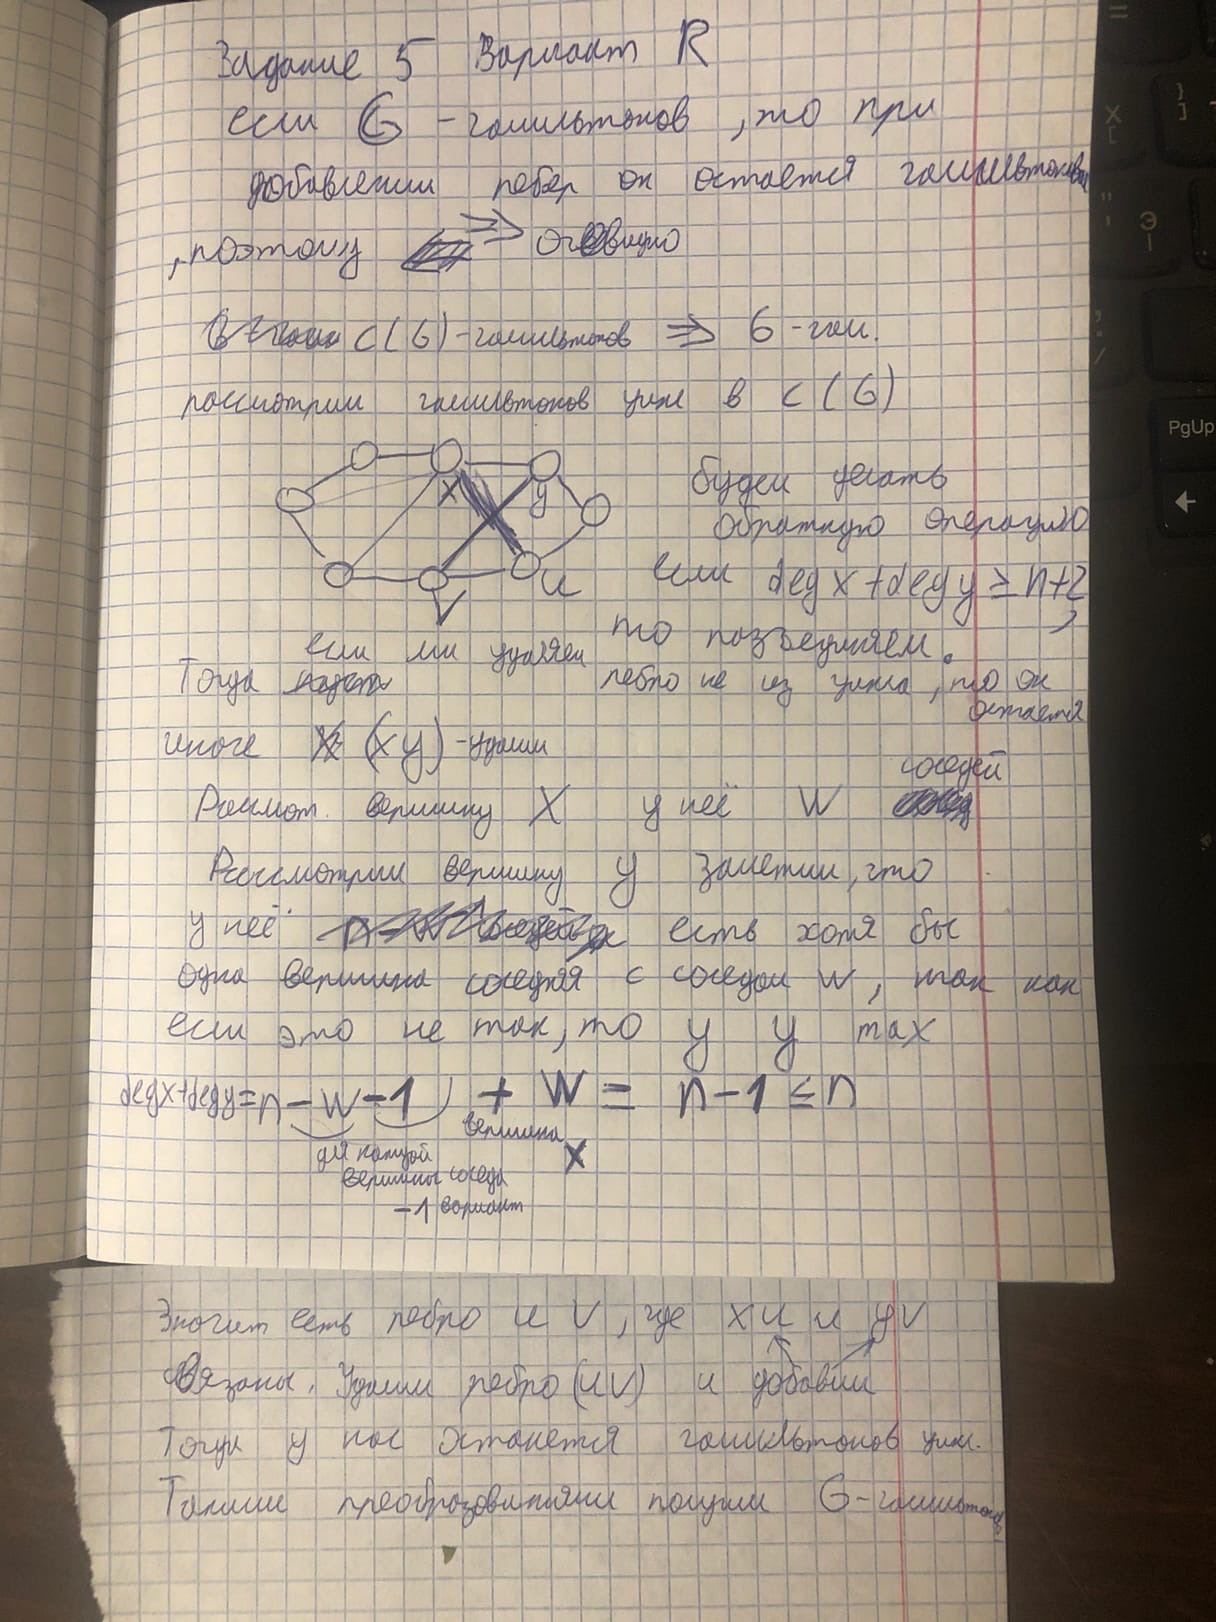 Задание 5 Вариант R
если G - гамильтонов, то при
добавлении ребер он остается гамильтоновым
, поэтому => очевидно
C(G) - гамильтонов => G - гам.
рассмотрим гамильтонов цикл в C(G)
x y
u
v
будем делать
обратную операцию
если deg x + deg y ≥ n+2,
то разъединяем.
Тогда если мы удаляем ребро не из цикла, то он
остается
иначе (xy) - удалим
Рассмот. вершину X у неё W соседей
Рассмотрим вершину y заметим, что
у неё есть хотя бы
одна вершина соседняя с соседом w, так как
если это не так, то у y max
deg x + deg y = n - w - 1) + w = n - 1 ≤ n
для каждой
вершины соседа
-1 вариант
вершина
X
Значит есть ребро u v, где xu и yv
связаны. Удалим ребро (uv) и добавим
Тогда у нас останется гамильтонов цикл.
Такими преобразованиями получим G - гамильтонов